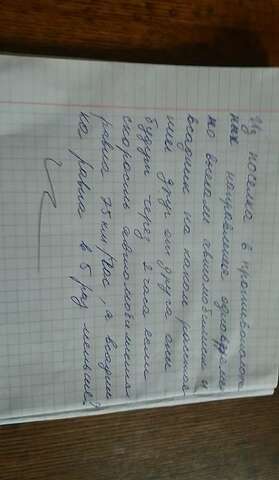 Из поселка в противополож
ных направления одновреме
но выехали автомобилист и
всадник на каком расстоя
нии друг от друга они
будут через 2 часа если
скорость автомобилиста
равна 75 км/час, а всадни
ка равна в 5 раз меньше?